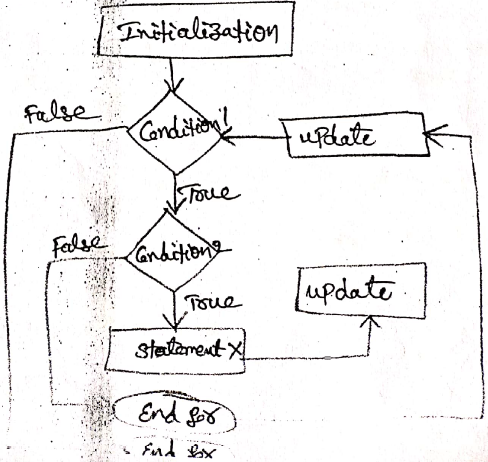 Initialization
False
Condition1
update
True
False
Condition2
True
update
Statement X
End for
End for